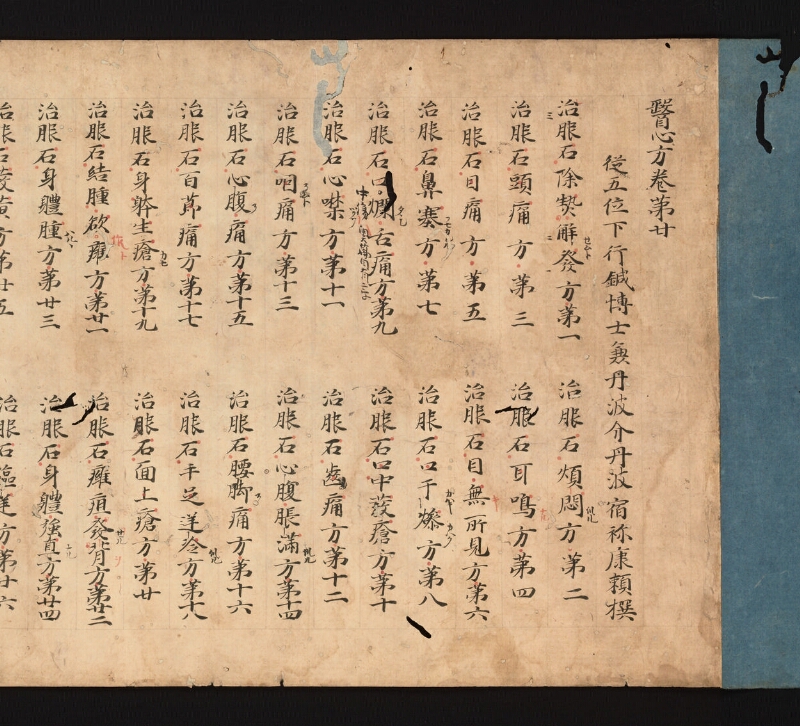 醫心方卷第廿
從五位下行鍼博士兼丹波介丹波宿祢康頼撰
治服石除熱解發方第一 治服石煩悶方第二
治服石頭痛方第三 治服石耳鳴方第四
治服石目痛方第五 治服石目無所見方第六
治服石鼻塞方第七 治服石口干燥方第八
治服石口爛舌痛方第九 治服石口中發瘡方第十
治服石心噤方第十一 治服石齒痛方第十二
治服石咽痛方第十三 治服石心腹脹滿方第十四
治服石心腹痛方第十五 治服石腰脚痛方第十六
治服石百節痛方第十七 治服石手足逆冷方第十八
治服石身躰生瘡方第十九 治服石面上瘡方第廿
治服石結腫欲癰方第廿一 治服石癰疽發背方第廿二
治服石身體腫方第廿三 治服石身體強直方第廿四
治服石發黃方第廿五 治服石 逆方第廿六